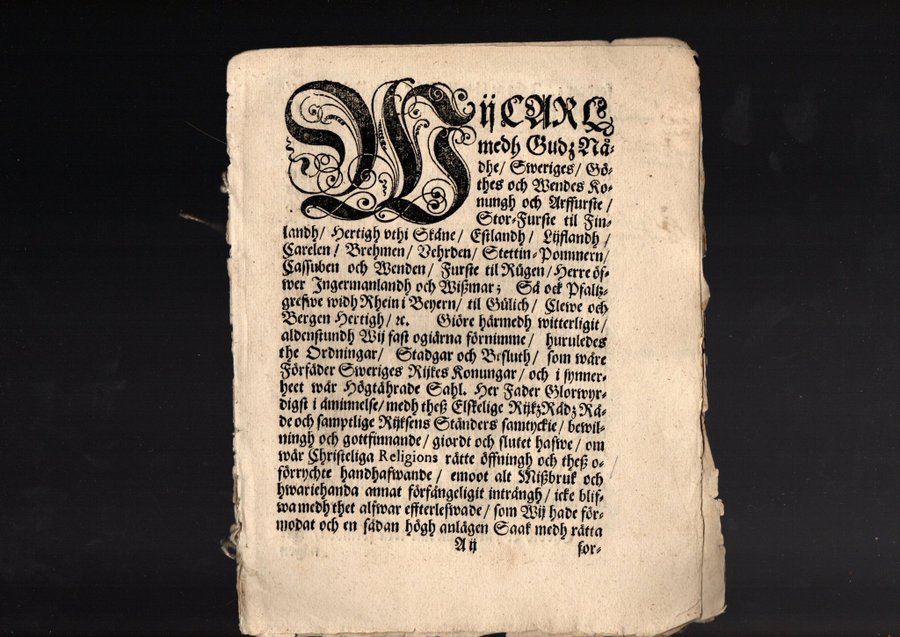 Wij CARL
medh Gudz Nå-
dhe/ Sweriges/ Gö-
thes och Wendes Ko-
nungh och Arffurste/
Stor-Furste til Fin-
landh/ Hertigh vthi Skåne/ Estlandh/ Lijflandh/
Carelen/ Brehmen/ Vehrden/ Stettin-Pommern/
Cassuben och Wenden/ Furste til Rügen/ Herre öf-
wer Ingermanlandh och Wißmar; Så ock Pfaltz-
grefwe widh Rhein i Beyern/ til Gülich/ Clewe och
Bergen Hertigh/ ꝛc. Giöre härmedh witterligit/
aldenstundh Wij fast ogiärna förnimme/ huruledes
the Ordningar/ Stadgar och Besluth/ som wåre
Förfäder Sweriges Rijkes Konungar/ och i synner-
heet wår Högtährade Sahl. Her Fader Glorwyr-
digst i åminnelse/ medh theß Elskelige RijkzRådz Rå-
de och samptlige Rijksens Ständers samtyckie/ bewil-
ningh och gottfinnande/ giordt och slutet hafwe/ om
wår Christeliga Religions rätte öffningh och theß o-
förrychte handhafwande/ emoot alt Mißbruk och
hwariehanda annat förfängeligit inträngh/ icke blif-
wa medh thet alfwar effterlefwade/ som Wij hade för-
modat och en sådan högh anlägen Saak medh rätta
A ij for-